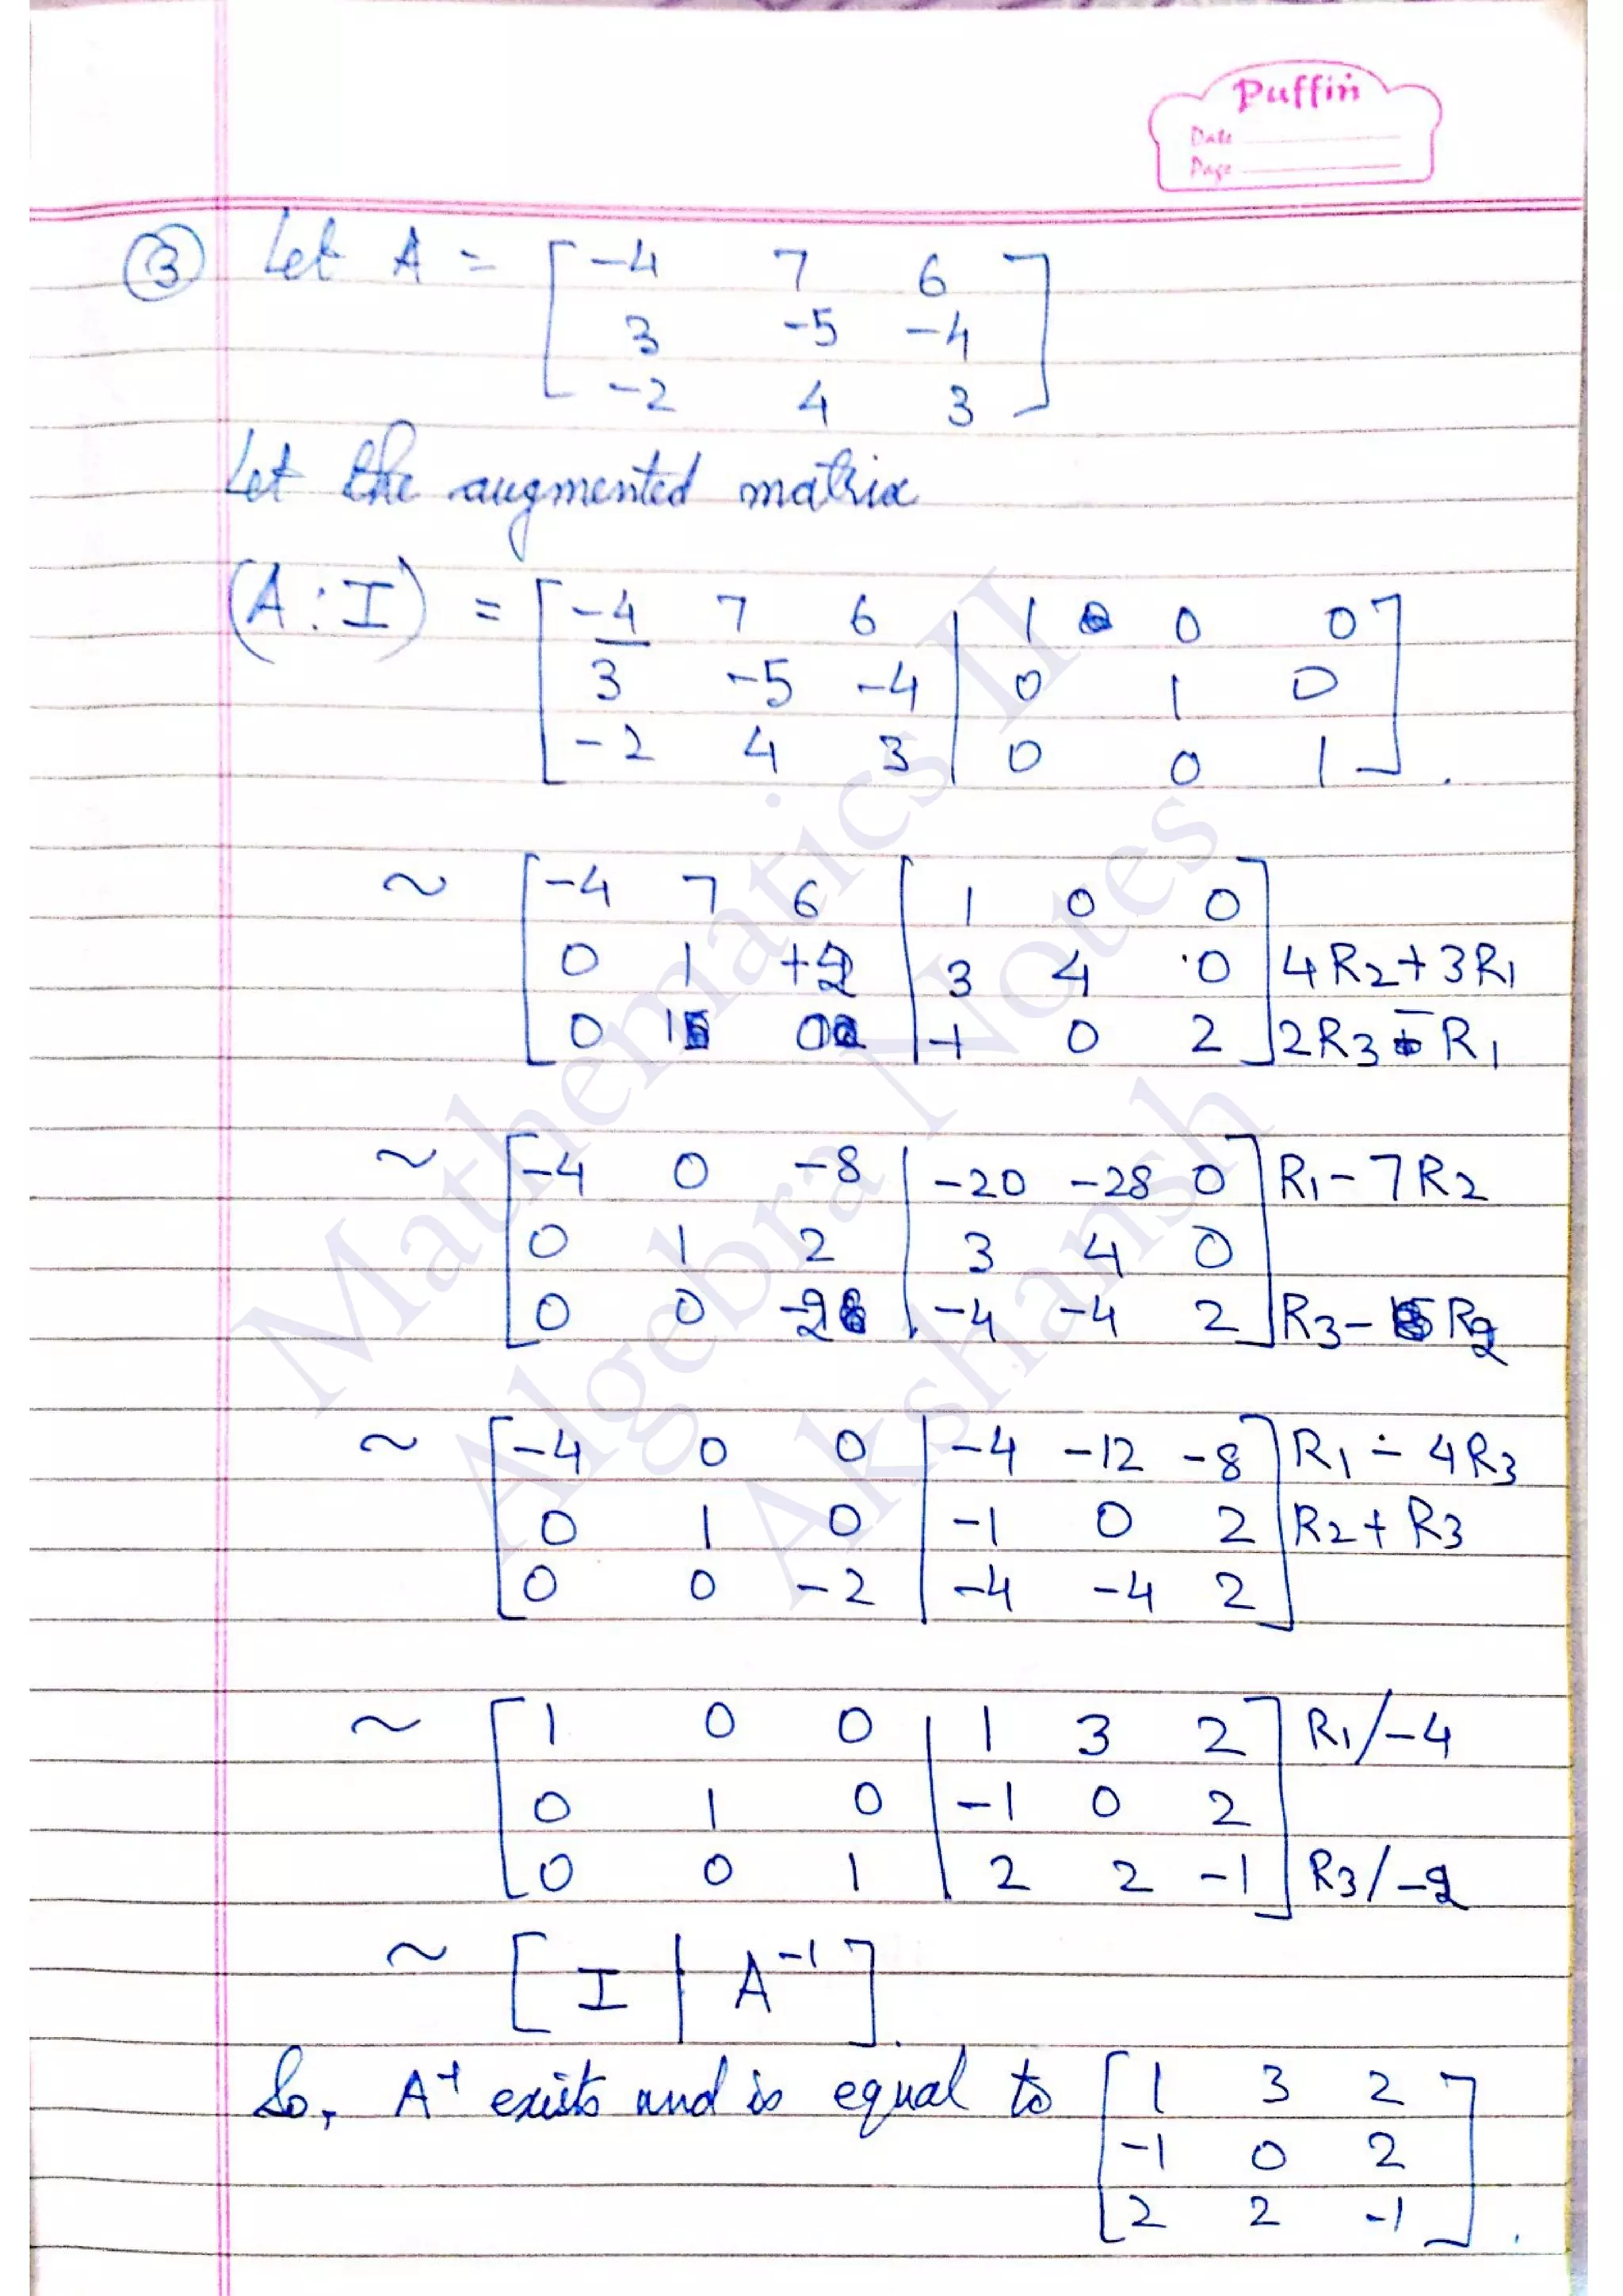 Puffin
Date
Page
③ Let A = [ -4 7 6
3 -5 -4
-2 4 3 ]
Let the augmented matrix
(A : I) = [ -4 7 6 | 1 0 0
3 -5 -4 | 0 1 0
-2 4 3 | 0 0 1 ].
~ [ -4 7 6 | 1 0 0 ]
0 1 +2 | 3 4 0 ] 4R2 + 3R1
0 1 0 | -1 0 2 ] 2R3 - R1
~ [ -4 0 -8 | -20 -28 0 ] R1 - 7R2
0 1 2 | 3 4 0
0 0 -2 | -4 -4 2 ] R3 - R2
~ [ -4 0 0 | -4 -12 -8 ] R1 - 4R3
0 1 0 | -1 0 2 ] R2 + R3
0 0 -2 | -4 -4 2 ]
~ [ 1 0 0 | 1 3 2 ] R1/-4
0 1 0 | -1 0 2
0 0 1 | 2 2 -1 ] R3/-2
~ [ I | A⁻¹ ].
So, A⁻¹ exists and is equal to [ 1 3 2
-1 0 2
2 2 -1 ].
Mathematics II
Algebra Notes
Akshansh